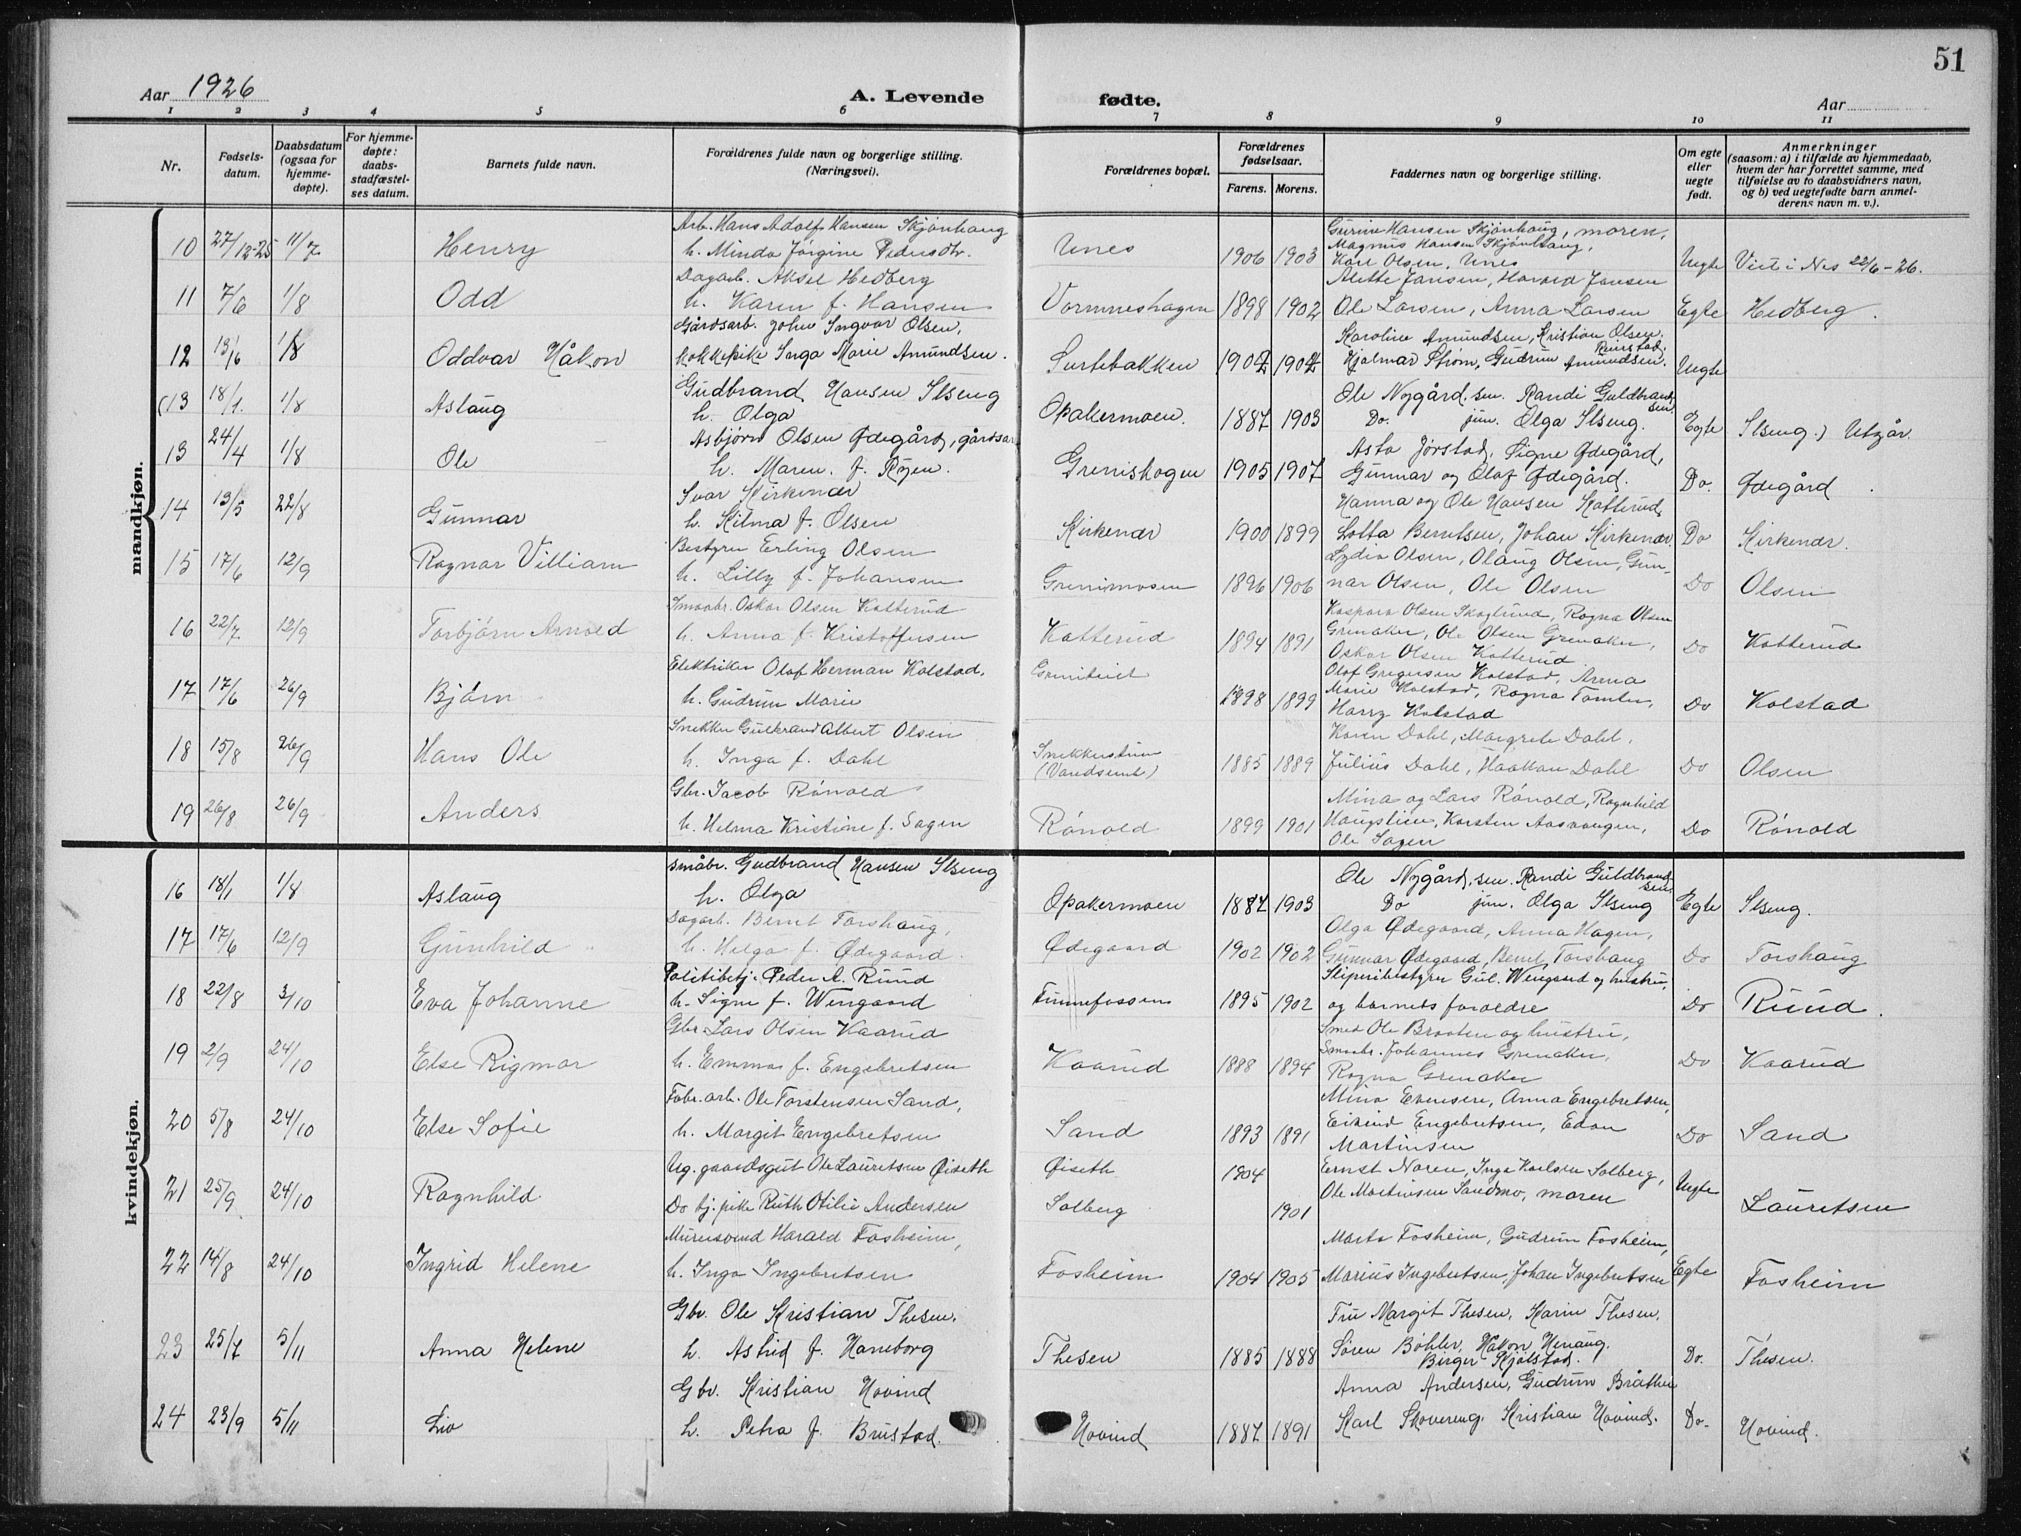 51
Aar 1926
A. Levende
fødte.
Aar
1 2 3 4 5 6 7 8 9 10 11
Nr.
Fødsels-
datum.
Daabsdatum
(ogsaa for
hjemme-
døpte).
For hjemme-
døpte:
daabs-
stadfæstel-
ses datum.
Barnets fulde navn.
Forældrenes fulde navn og borgerlige stilling.
(Næringsvei).
Forældrenes bopæl.
Forældrenes
fødselsaar.
Farens. Morens.
Faddernes navn og borgerlige stilling.
Om egte
eller
uegte
født.
Anmerkninger
(saasom: a) i tilfælde av hjemmedaab,
hvem der har forrettet samme, med
tilføielse av to daabsvidners navn,
og b) ved uegtefødte barn anmel-
derens navn m. v.).
mandkjøn.
Arb. Hans Adolf Hansen Skjønhaug
Gurine Hansen Skjønhaug, moren,
Magnus Hansen Skjønhaug,
10 27/12-25 11/7 Henry h. Minda Jørgine Pedersdtr. Unes 1906 1903 Karl Olsen, Unes Uegte Viet i Nes 22/6-26.
Dagarb. Aksel Hedberg
Alette Jansen, Harald Jansen
11 7/6 1/8 Odd h. Karen f. Hansen Vormneshagen 1898 1902 Ole Larsen, Anna Larsen Egte Hedberg.
Gårdsarb. John Ingvar Olsen,
Karoline Amundsen, Kristian Olsen
12 13/6 1/8 Oddvar Håkon kokkepike Inga Marie Amundsen. Surtebakken 1902 1904 Hjalmar Strøm, Gudrun Amundsen. Uegte
Gudbrand Hansen Ilseng
Ole Nygård, sen. Randi Guldbrand-
sen.
(13 18/1. 1/8 Aslaug h. Olga Opakermoen. 1887 1903 Do. jun. Olga Ilseng. Egte Ilseng.) Utgår.
Asbjørn Olsen Ødegård, gårdsar
Asta Jørstad, Signe Ødegård,
13 24/4 1/8 Ole h. Maren f. Røgen. Grenishagen 1905 1907 Gunnar og Olaf Ødegård. Do. Ødegård.
Ivar Kirkenær
Hanna og Ole Hansen Katterud,
14 13/5 22/8 Gunnar h. Hilma f. Olsen Kirkenær 1900 1899 Lotta Berntsen, Johan Kirkenær. Do Kirkenær.
Bestyrer Erling Olsen
Lydia Olsen, Olaug Olsen, Gun-
15 17/6 12/9 Ragnar Villiam h. Lilly f. Johansen Grenimosen 1896 1906 nar Olsen, Ole Olsen Do Olsen
Smaabr. Oskar Olsen Katterud
Kaspara Olsen Skoglund, Ragna Olsen
16 22/7 12/9 Torbjørn Arnold h. Anna f. Kristoffersen Katterud 1894 1891 Grenaker, Ole Olsen Grenaker, Do Katterud
Oskar Olsen Katterud.
Elektriker Olaf Herman Kolstad.
Olaf Gregersen Kolstad, Anna
17 17/6 26/9 Bjørn h. Gudrun Marie 1898 1899 Marie Kolstad, Ragna Tomter, Do Kolstad
Harry Kolstad
Snekker Gulbrand Albert Olsen
Karen Dahl, Margrete Dahl,
18 15/8 26/9 Hans Ole h. Inga f. Dahl Snekkerstuen
(Vandsemb) 1885 1889 Julius Dahl, Haakon Dahl Do Olsen
Gbr. Jacob Rånold
Mina og Lars Rånold, Ragnhild
19 26/8 26/9 Anders h. Helma Kristine f. Sagen Rånold 1899 1901 Haugslien, Karsten Aasvangen, Do Rånold
Ole Sagen
kvindekjøn.
småbr. Gudbrand Hansen Ilseng
Ole Nygård, sen. Randi Guldbrand-
sen.
16 18/1 1/8 Aslaug h. Olga Opakermoen 1887 1903 Do jun. Olga Ilseng Egte Ilseng.
Dagarb. Bernt Torshaug,
Olga Ødegaard, Anna Hagen,
17 17/6 12/9 Gunhild h. Helga f. Ødegaard. Ødegaard 1902 1902 Gunnar Ødegaard, Bernt Torshaug Do Torshaug
Politibetj. Peder A. Ruud
Sliperibestyrer Gul. Wengaard og hustru,
18 22/8 3/10 Eva Johanne h. Signe f. Wengaard Funnefossen 1895 1902 og barnets forældre Do Ruud.
Gbr. Lars Olsen Kaarud
Smed Ole Braaten og hustru,
19 2/9 24/10 Else Rigmor h. Emma f. Engebretsen Kaarud 1888 1894 Smaabr. Johannes Grenaker, Do Kaarud
Ragna Grenaker
Fabr. arb. Ole Torstensen Sand,
Mina Evensen, Anna Engebretsen,
20 5/8 24/10 Else Sofie h. Margit Engebretsen Sand 1893 1891 Eivind Engebretsen, Edon Do Sand
Martinsen
Ug. gaardsgut Ole Lauritsen Øiseth Øiseth 1904 Ernst Noren, Inga Karlsen Solberg,
21 25/9 24/10 Ragnhild Do tj. pike Ruth Otilie Andersen Solberg 1901 Ole Martinsen Sandmo, moren Uegte Lauritsen
Murersvend Harald Fosheim,
Marta Fosheim, Gudrun Fosheim,
22 14/8 24/10 Ingrid Helene h. Inga Ingebretsen Fosheim 1904 1905 Marius Ingebretsen, Johan Ingebretsen Egte Fosheim
Gbr. Ole Kristian Thesen,
Fru Margit Thesen, Karin Thesen,
23 25/7 5/11 Anna Helene h. Astrid f. Haneborg Thesen 1885 1888 Søren Bøhler, Håkon Henaug. Do. Thesen.
Birger Kjølstad.
Gbr. Kristian Hovind
Anna Andersen, Gudrun Bråthen
24 23/9 5/11 Liv h. Petra f. Brustad. Hovind 1887 1891 Karl Skovereng, Kristian Hovind. Do. Hovind.